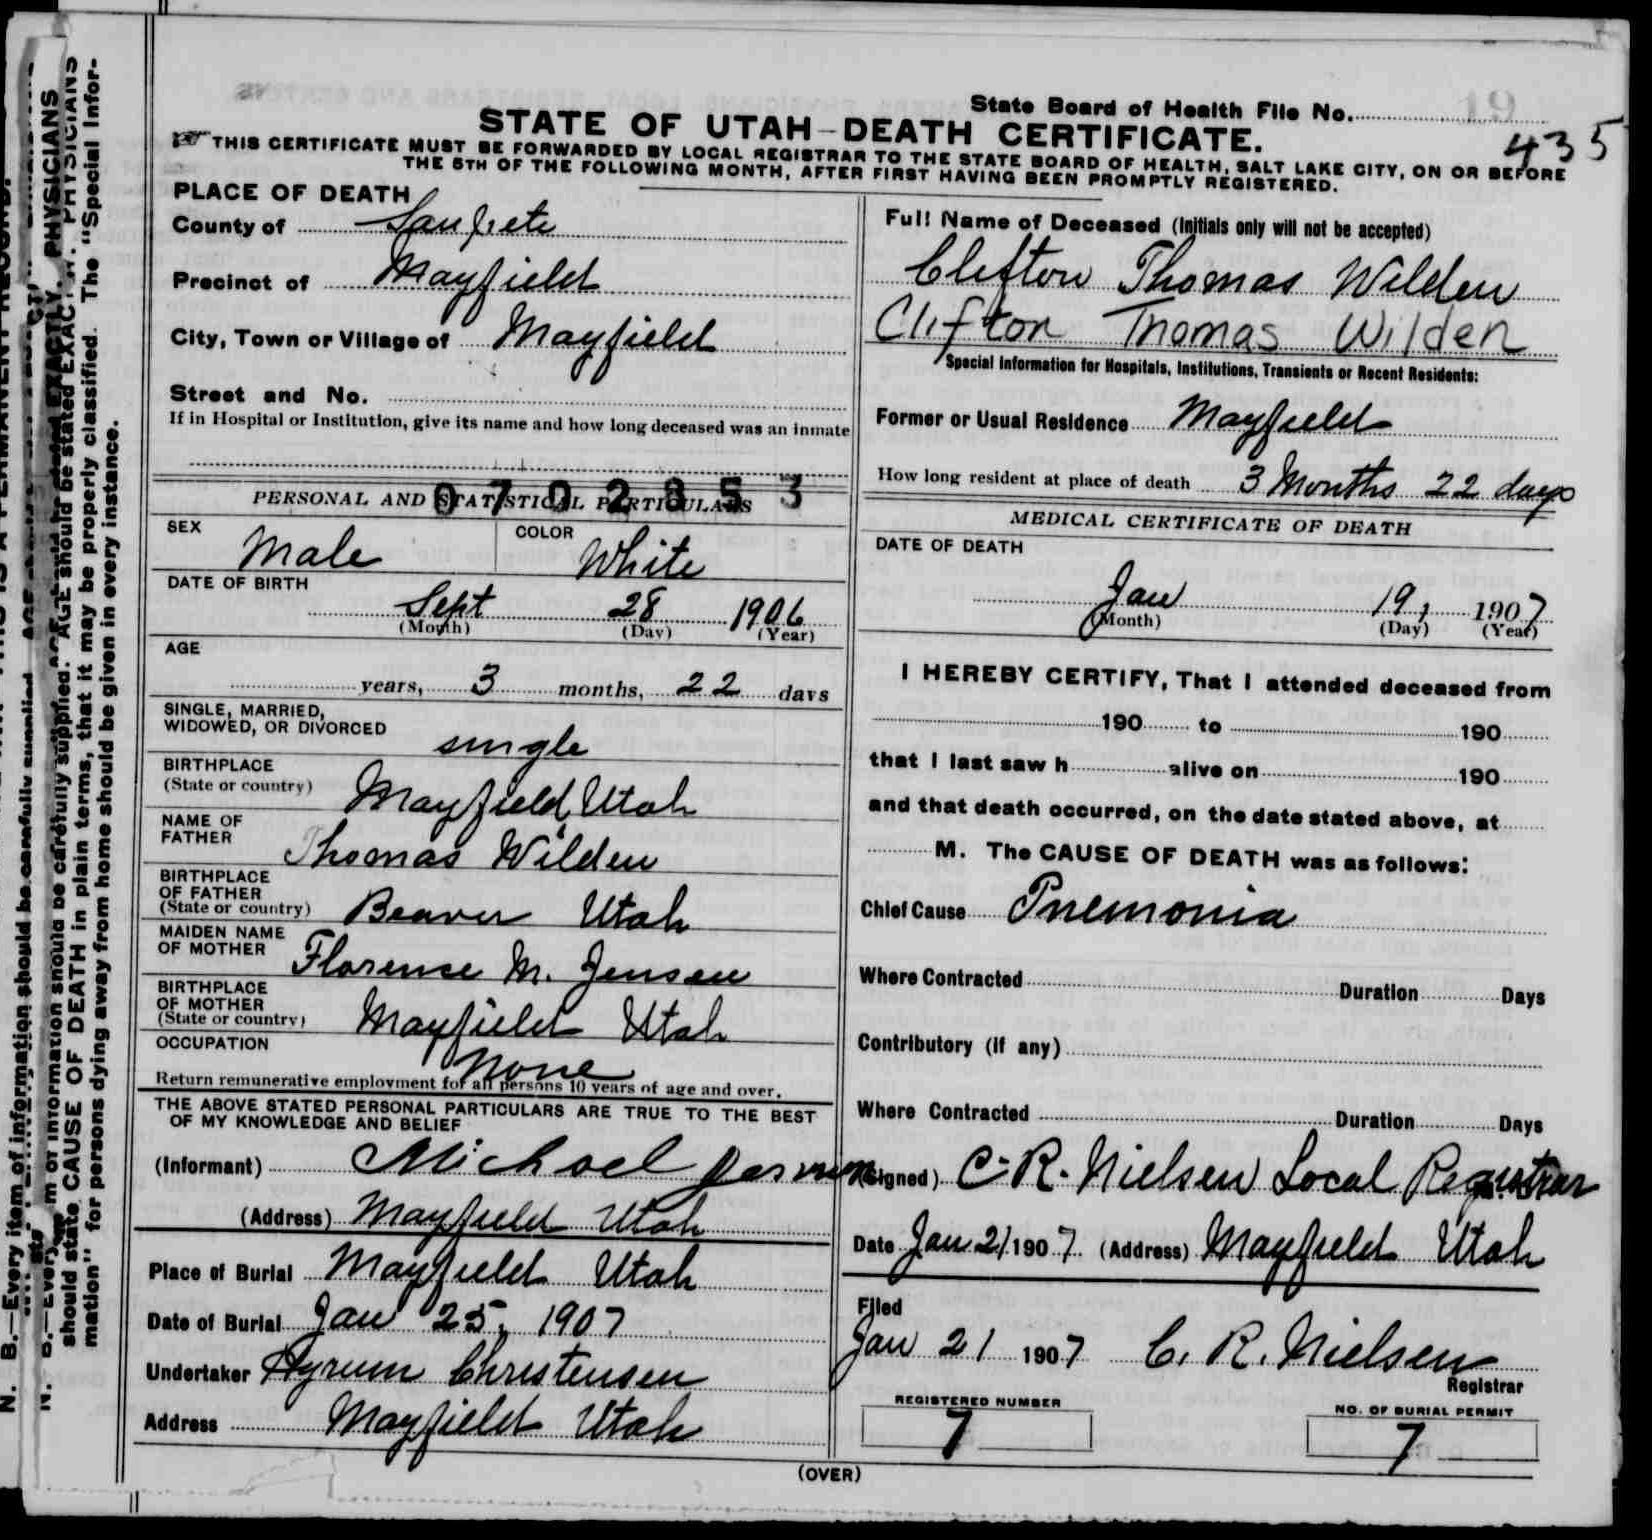 State Board of Health File No. 19
435
STATE OF UTAH—DEATH CERTIFICATE.
THIS CERTIFICATE MUST BE FORWARDED BY LOCAL REGISTRAR TO THE STATE BOARD OF HEALTH, SALT LAKE CITY, ON OR BEFORE
THE 5TH OF THE FOLLOWING MONTH, AFTER FIRST HAVING BEEN PROMPTLY REGISTERED.
PLACE OF DEATH
County of Sanpete
Precinct of Mayfield
City, Town or Village of Mayfield
Street and No.
If in Hospital or Institution, give its name and how long deceased was an inmate
0702853
PERSONAL AND STATISTICAL PARTICULARS
SEX Male COLOR White
DATE OF BIRTH
Sept 28 1906
(Month) (Day) (Year)
AGE
years, 3 months, 22 days
SINGLE, MARRIED,
WIDOWED, OR DIVORCED single
BIRTHPLACE
(State or country) Mayfield, Utah
NAME OF
FATHER Thomas Wilden
BIRTHPLACE
OF FATHER
(State or country) Beaver Utah
MAIDEN NAME
OF MOTHER Florense M. Jensen
BIRTHPLACE
OF MOTHER
(State or country) Mayfield Utah
OCCUPATION None
Return remunerative employment for all persons 10 years of age and over.
THE ABOVE STATED PERSONAL PARTICULARS ARE TRUE TO THE BEST
OF MY KNOWLEDGE AND BELIEF
(Informant) Michael
(Address) Mayfield Utah
Place of Burial Mayfield Utah
Date of Burial Jan 25, 1907
Undertaker Hyrum Christensen
Address Mayfield Utah
Full Name of Deceased (Initials only will not be accepted)
Clifton Thomas Wilden
Clifton Thomas Wilden
Special Information for Hospitals, Institutions, Transients or Recent Residents:
Former or Usual Residence Mayfield
How long resident at place of death 3 Months 22 days
MEDICAL CERTIFICATE OF DEATH
DATE OF DEATH
Jan 19, 1907
(Month) (Day) (Year)
I HEREBY CERTIFY, That I attended deceased from
190 to 190
that I last saw h alive on 190
and that death occurred, on the date stated above, at
M. The CAUSE OF DEATH was as follows:
Chief Cause Pnemonia
Where Contracted Duration Days
Contributory (if any)
Where Contracted Duration Days
(Signed) C. R. Nielsen Local Registrar
Date Jan 21 1907. (Address) Mayfield Utah
Filed
Jan 21 1907 C. R. Nielsen
Registrar
REGISTERED NUMBER
7
NO. OF BURIAL PERMIT
7
(OVER)
N. B.—Every item of information should be carefully supplied. AGE should be stated EXACTLY. PHYSICIANS
should state CAUSE OF DEATH in plain terms, that it may be properly classified. The "Special Infor-
mation" for persons dying away from home should be given in every instance.